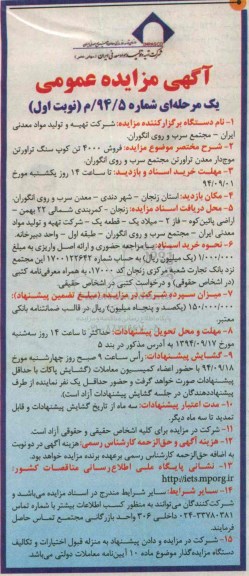 شرکت تهیه و تولید مواد معدنی ایران
آگهی مزایده عمومی
یک مرحله‌ای شماره ۹۴/۵/م (نوبت اول)
۱- نام دستگاه برگزارکننده مزایده: شرکت تهیه و تولید مواد معدنی
ایران - مجتمع سرب و روی انگوران.
۲- شرح مختصر موضوع مزایده: فروش ۴۰۰۰ تن کوپ سنگ تراورتن
موج‌دار معدن تراورتن مجتمع سرب و روی انگوران.
۳- مهلت خرید اسناد و بازدید: تا ساعت ۱۴ روز یکشنبه مورخ
۹۴/۰۹/۰۱
۴- مکان بازدید: استان زنجان - شهر دندی - معدن سرب و روی انگوران.
۵- محل دریافت اسناد مزایده: زنجان - کمربندی شمالی ۲۲ بهمن -
اراضی پائین‌کوه - فاز ۲ - میلاد یک - قطعه یک - شرکت تهیه و تولید مواد
معدنی ایران - مجتمع سرب و روی انگوران - طبقه اول - واحد دبیرخانه.
۶- نحوه خرید اسناد: با مراجعه حضوری و ارائه اصل واریزی به مبلغ
۱/۰۰۰/۰۰۰ (یک میلیون ریال) به حساب شماره ۱۷۰۰۱۲۲۶۴۲ این مجتمع
نزد بانک تجارت شعبه مرکزی زنجان کد ۱۷۰۰۰، به همراه معرفی‌نامه کتبی
(در اشخاص حقوقی) و درخواست کتبی در اشخاص حقیقی.
۷- میزان سپرده شرکت در مزایده: (مبلغ تضمین پیشنهاد):
۱۵۰/۰۰۰/۰۰۰ (یکصد و پنجاه میلیون) ریال در قالب ضمانتنامه بانکی
معتبر
۸- مهلت و محل تحویل پیشنهادات: حداکثر تا ساعت ۱۴ روز سه‌شنبه
مورخ ۱۳۹۴/۰۹/۱۷ به آدرس مذکور در بند ۵
۹- گشایش پیشنهادات: رأس ساعت ۹ صبح روز چهارشنبه مورخ
۹۴/۰۹/۱۸ با حضور اعضاء کمیسیون معاملات (گشایش پاکات با حداقل
پیشنهادات صورت خواهد گرفت و حضور حداقل یک نفر نماینده از طرف
پیشنهاددهندگان در جلسه گشایش پیشنهادات آزاد است).
۱۰- مدت اعتبار پیشنهادات: سه ماه از تاریخ گشایش پیشنهادات و قابل
تمدید تا سه ماه دیگر.
۱۱- شرکت در مزایده برای کلیه اشخاص حقیقی و حقوقی آزاد است.
۱۲- هزینه آگهی و حق‌الزحمه کارشناس رسمی: هزینه آگهی در دو نوبت
به اضافه حق‌الزحمه کارشناس رسمی برعهده برنده مزایده خواهد بود.
۱۳- نشانی پایگاه ملی اطلاع‌رسانی مناقصات کشور:
http//iets.mporg.ir
۱۴- سایر شرایط: سایر شرایط مندرج در اسناد مزایده می‌باشد و
شرکت‌کنندگان می‌توانند به منظور کسب اطلاعات بیشتر با شماره تماس
۰۲۴-۳۳۷۸۰۳۸۱ داخلی ۳۰۶ واحد بازرگانی مجتمع تماس حاصل
فرمایند.
۱۵- شرکت در مزایده و دادن پیشنهاد به منزله قبول اختیارات و تکالیف
دستگاه مزایده‌گذار موضوع ماده ۱۰ آیین‌نامه معاملات دولتی می‌باشد.